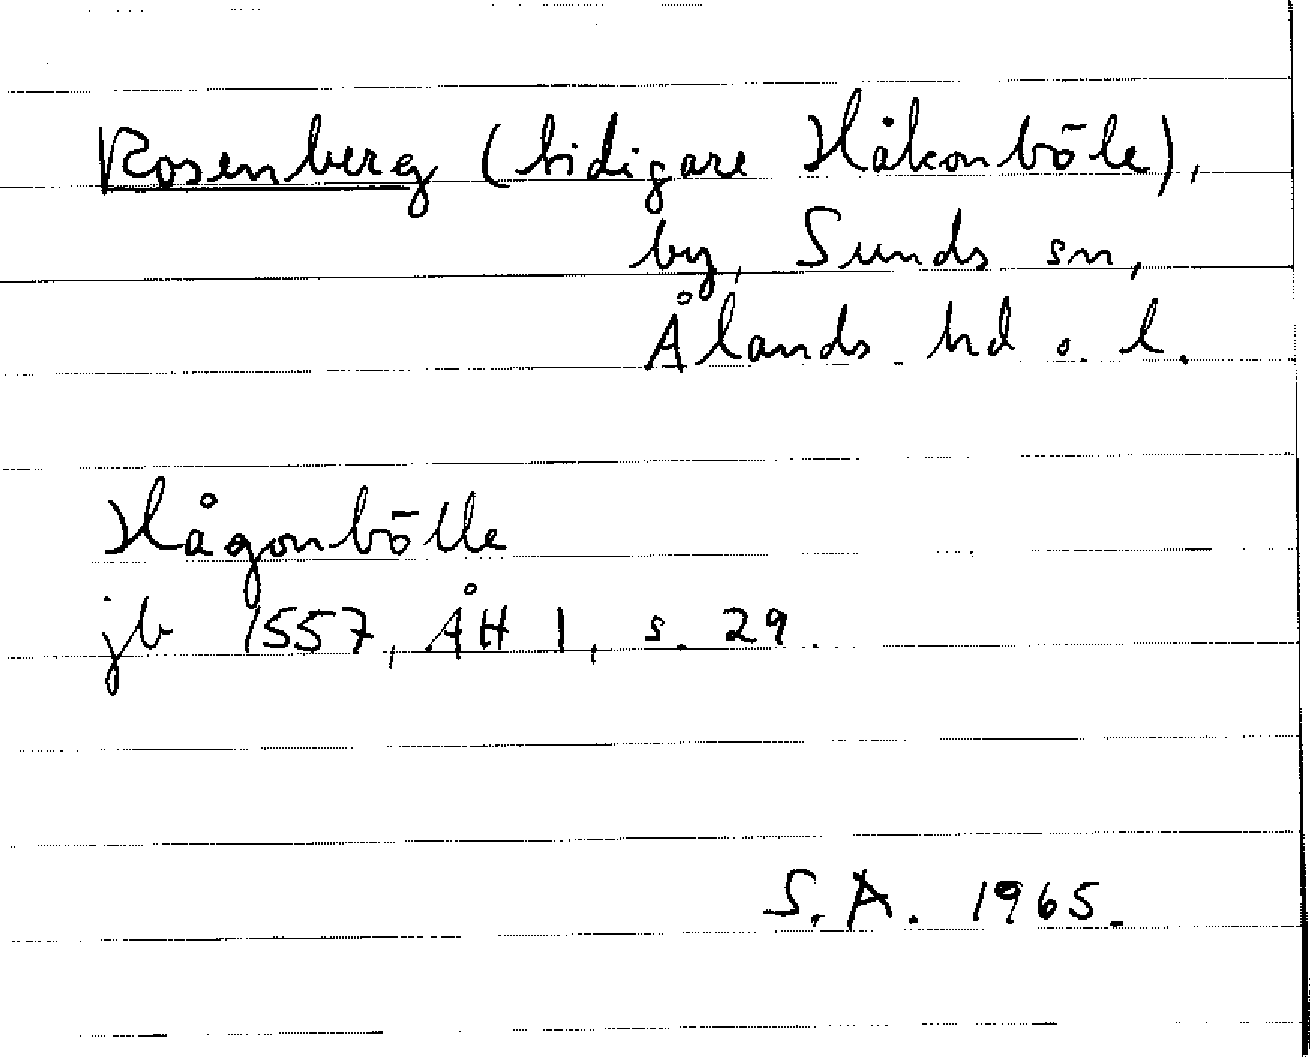 Rosenberg (tidigare Håkonböle),
by, Sunds sn,
Ålands hd o. l.
Hågonbölle
jb 1557, ÅH 1, s. 29.
S.A. 1965.